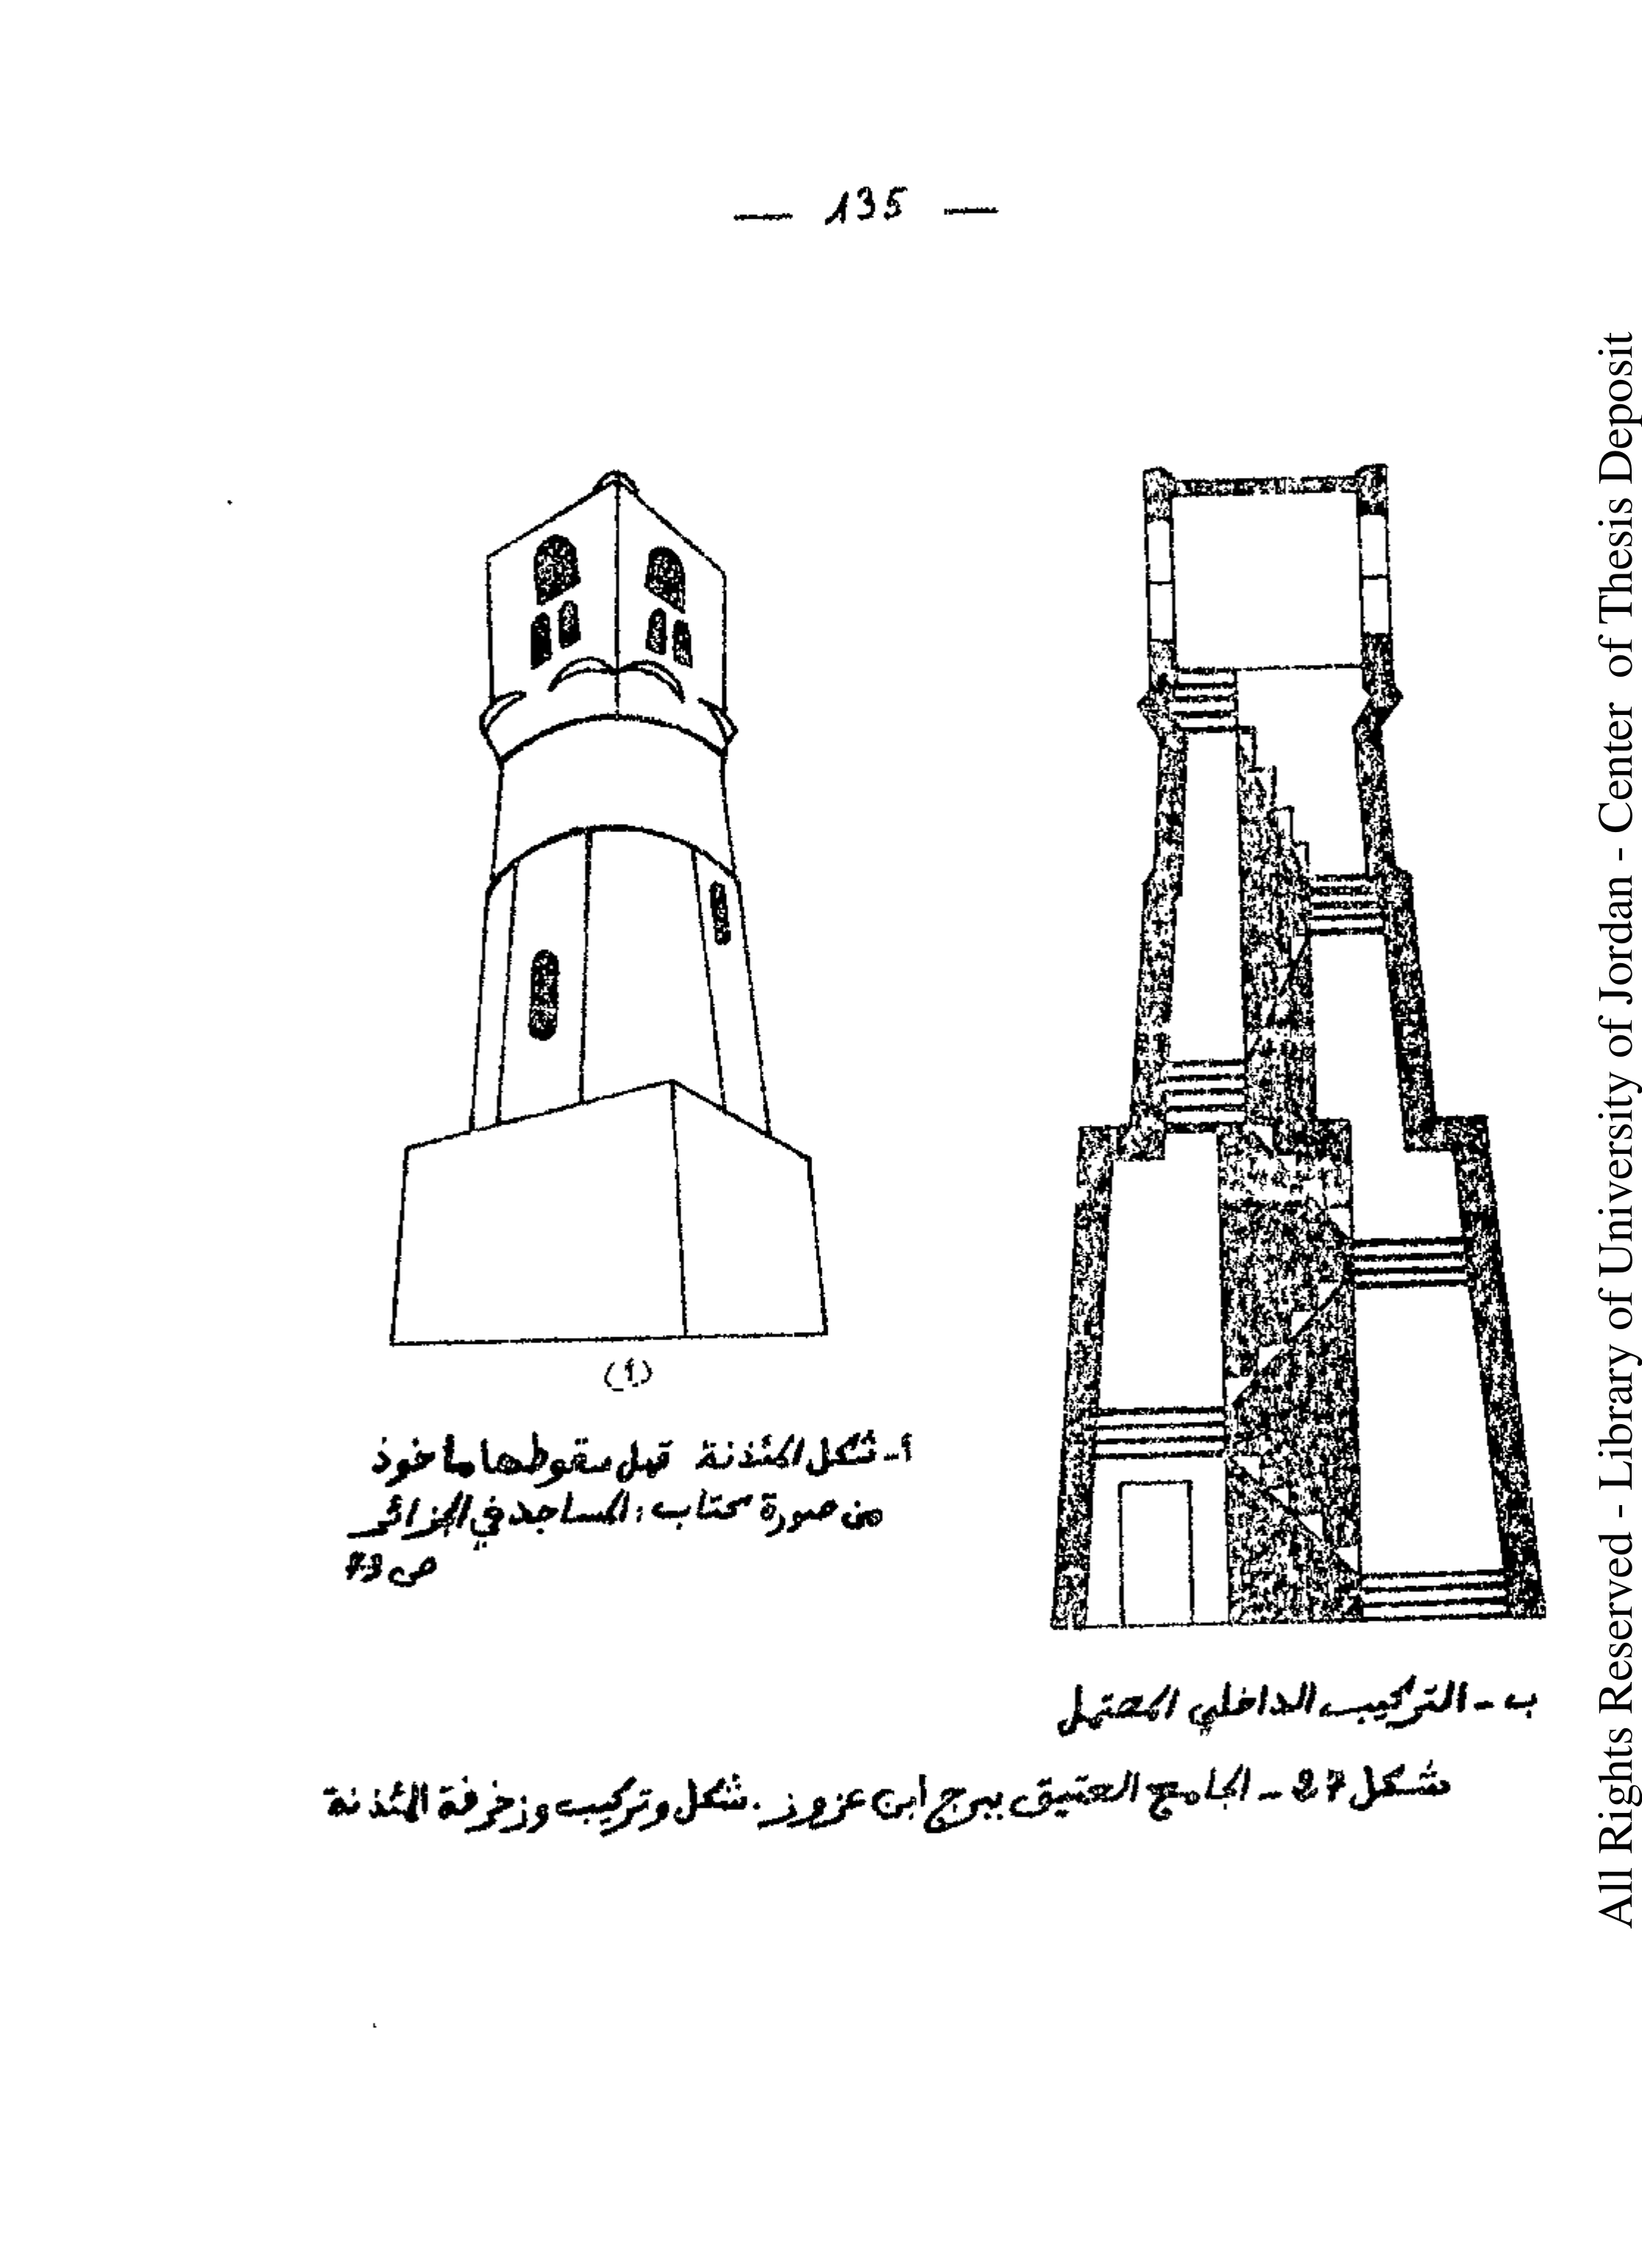 — 135 —
(أ)
أ - شكل المئذنة قبل سقوطها مأخوذ
من صورة كتاب : المساجد في الجزائر
ص 73
ب - التركيب الداخلي المحتمل
شكل 27 - الجامع العتيق ببرج ابن عزوز . شكل وتركيب وزخرفة المئذنة
All Rights Reserved - Library of University of Jordan - Center of Thesis Deposit